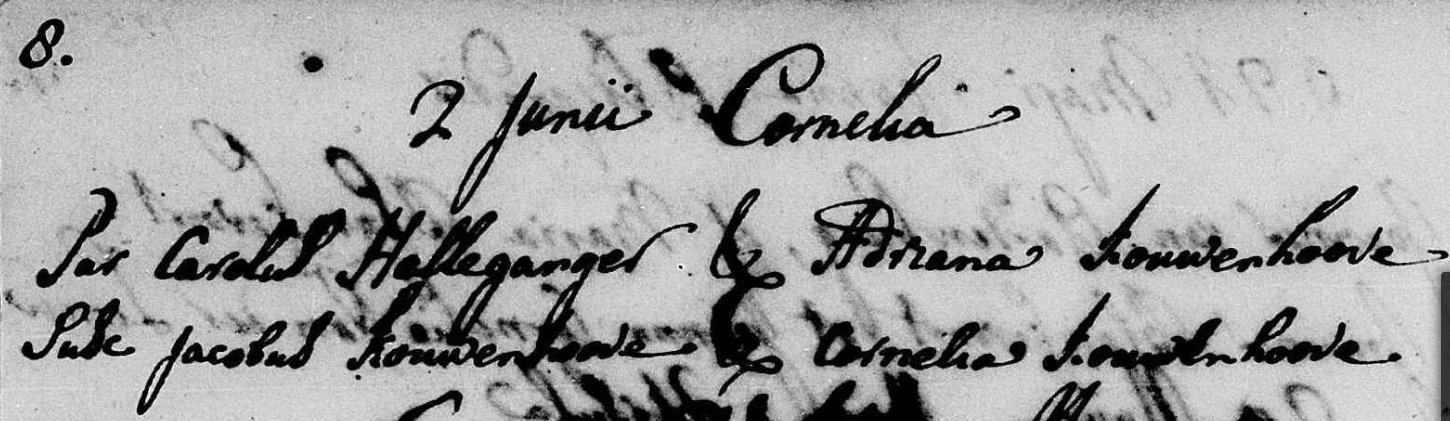 8.
2 Junii Cornelia
Par Carolus Hasleganger & Adriana Kouwenhoove
Susc Jacobus Kouwenhoove & Cornelia Kouwenhoove.